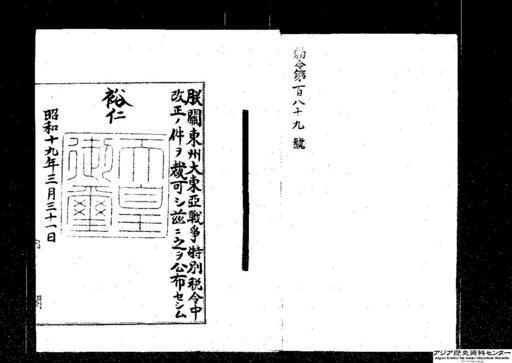 勅令第百八十九號
朕關東州大東亞戰爭特別税令中
改正ノ件ヲ裁可シ茲ニ之ヲ公布セシム
裕仁
天皇御璽
昭和十九年三月三十一日
アジア歴史資料センター
Japan Center for Asian Historical Records